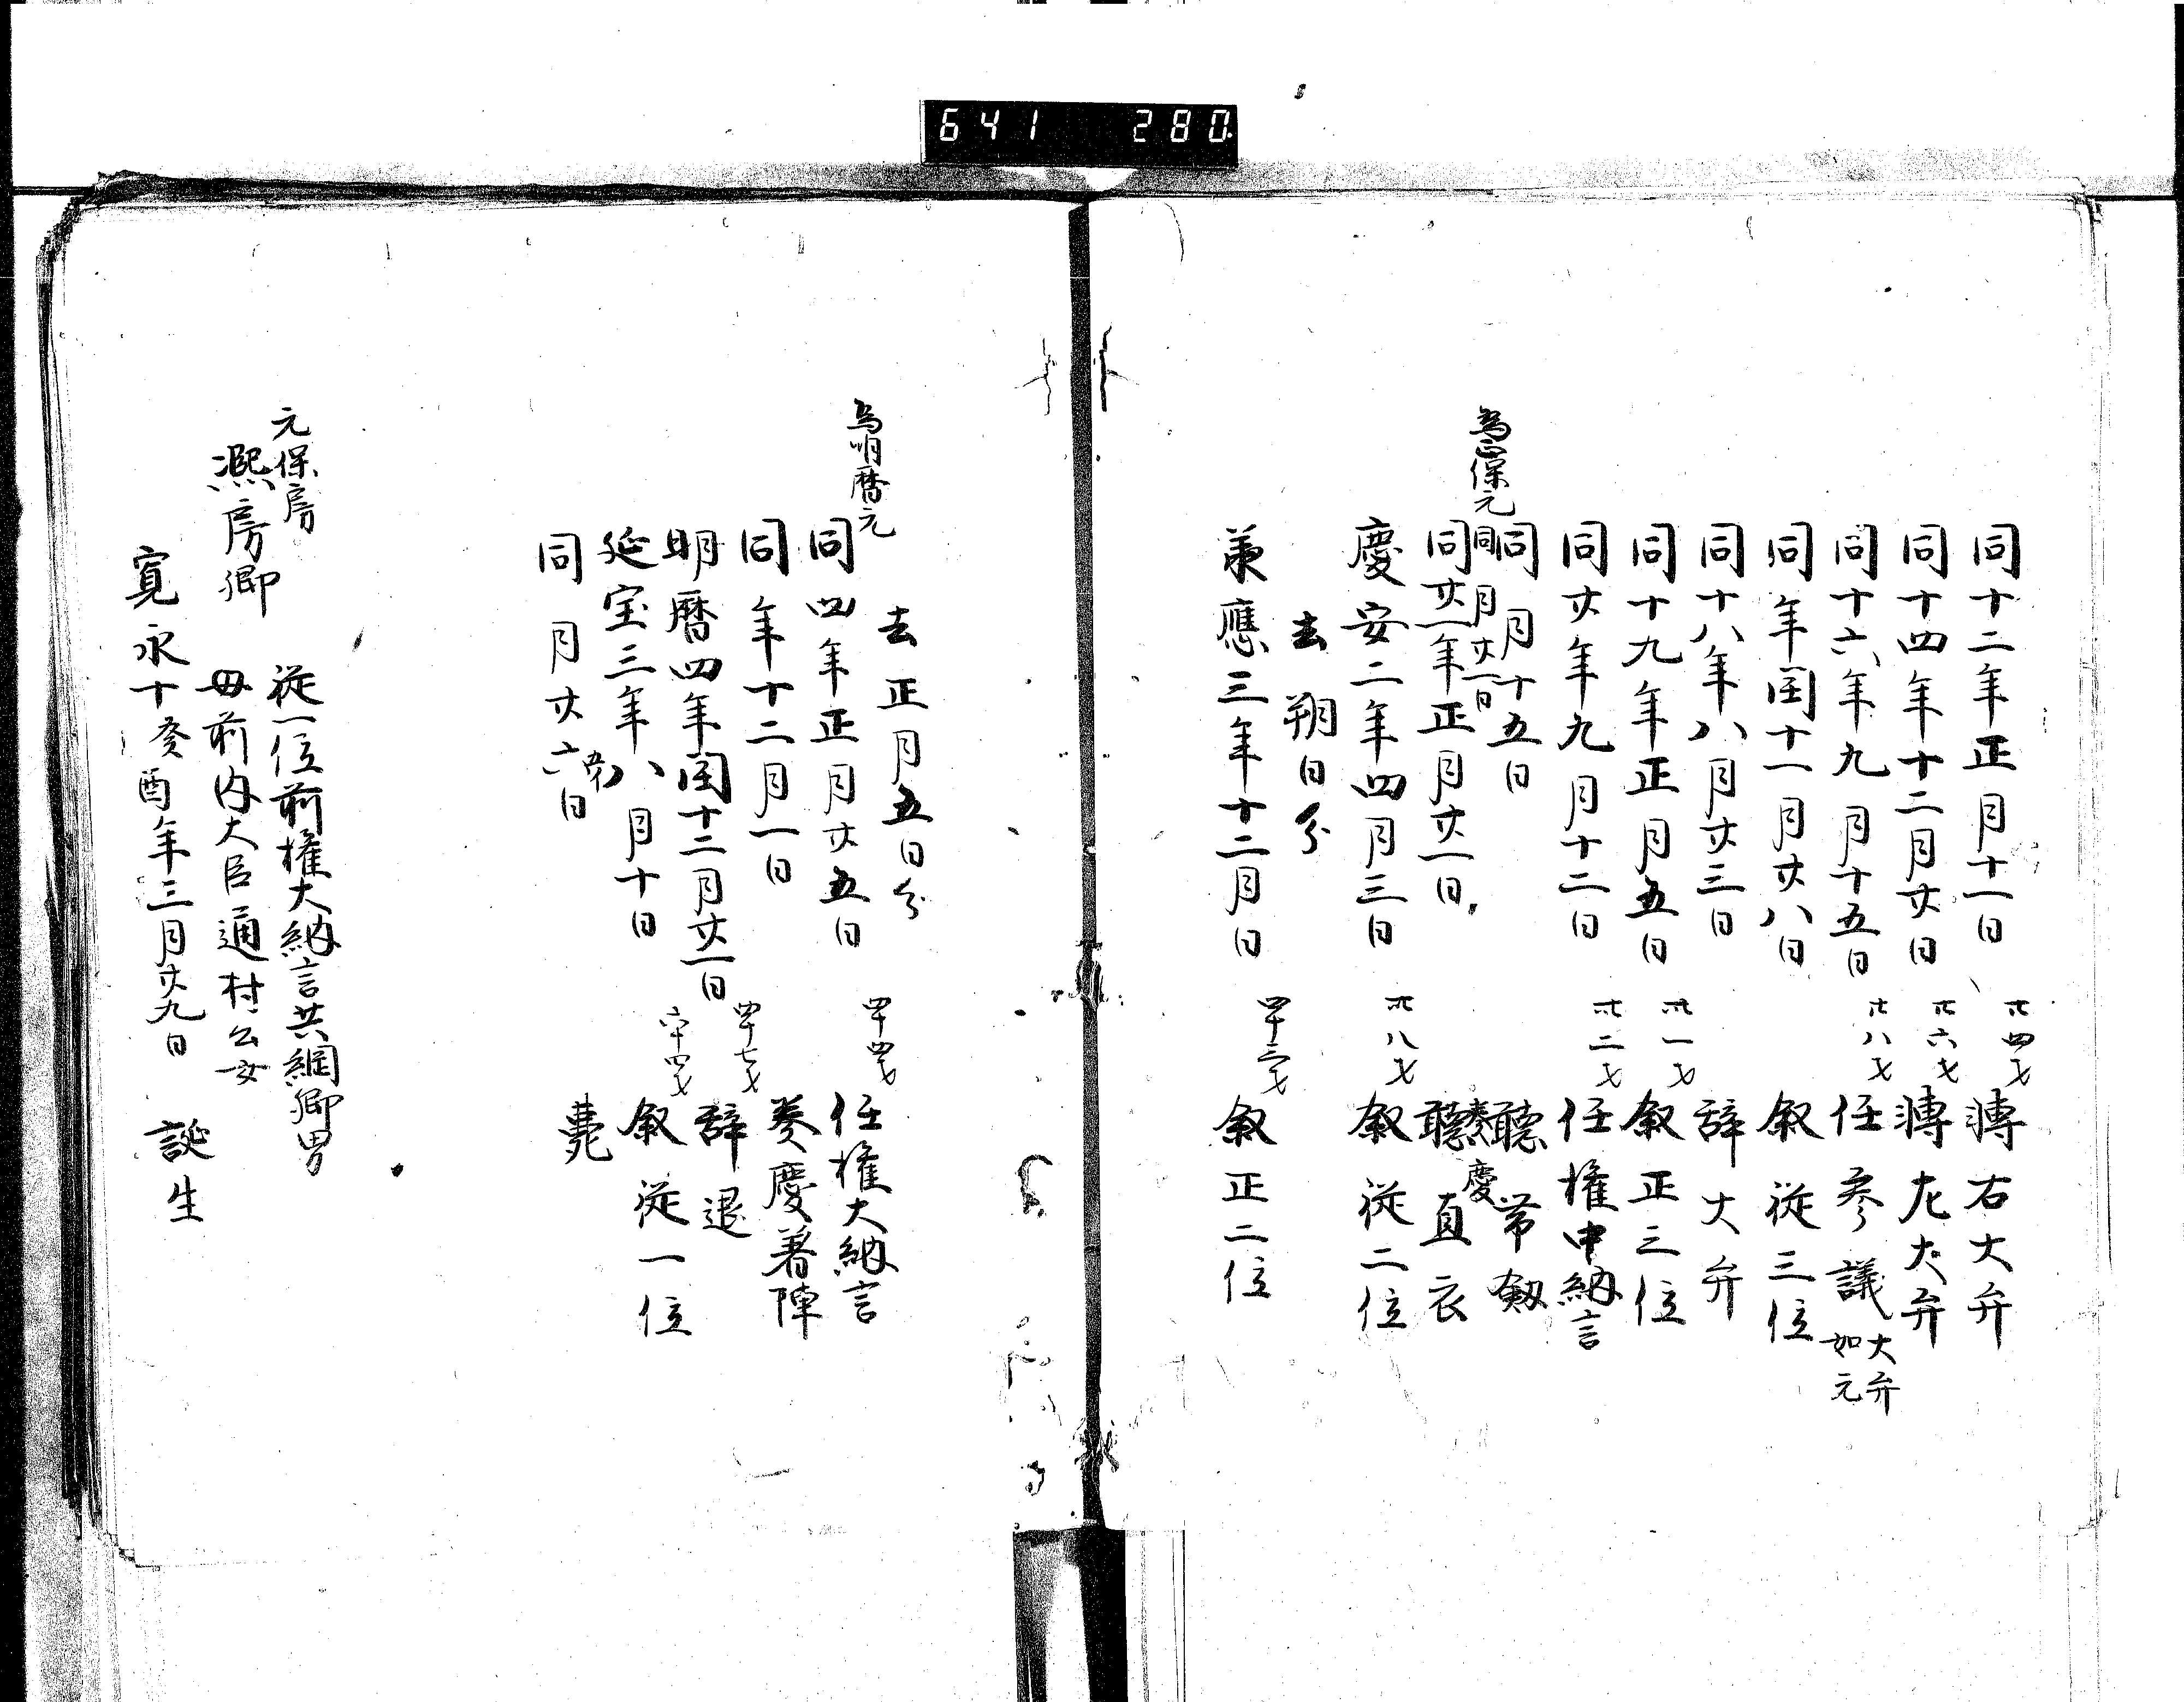 641 280
同十二年正月十一日 卅四才 轉右大弁
同十四年十二月廿日 卅六才 轉左大弁
同十六年九月十五日 卅八才 任参議 大弁如元
同年閏十一月廿八日 叙從三位
同十八年八月廿三日 辞大弁
同十九年正月五日 卌一才 叙正三位
同廿年九月十二日 卌二才 任権中納言
同月十五日 聴帯剱
同月廿一日 奏慶
為正保元
同廿一年正月廿一日 聴直衣
慶安二年四月三日 卌八才 叙從二位
去朔日分
承應三年十二月日 叙正二位
去正月五日分
為明暦元
同四年正月廿五日 任権大納言
同年十二月一日 奏慶著陣
明暦四年閏十二月廿一日 辞退
延宝三年八月十日 六十四才 叙從一位
同月廿六日 薨
從一位前権大納言共綱卿男
元保房
凞房卿 母前内大臣通村公女
寛永十癸酉年三月廿九日 誕生